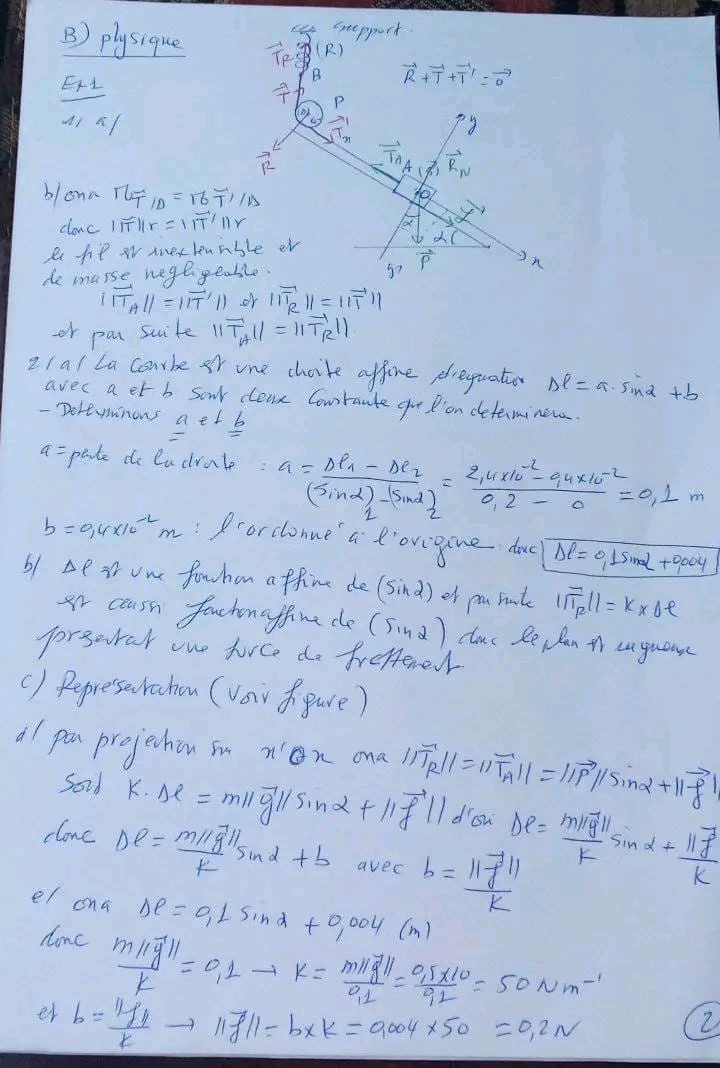 B) physique
Ex1
1/ a/
support
(R)
T⃗R
B
T⃗
P
R⃗ + T⃗ + T⃗' = 0⃗
y
T⃗'
x
R⃗
T⃗A
A (S)
R⃗N
O
f⃗
α
α
P⃗
y'
x
b/ ona M T⃗/Δ = M T⃗'/Δ
donc ||T⃗|| r = ||T⃗'|| r
le fil est inextensible et
de masse negligeable.
||T⃗A|| = ||T⃗'|| et ||T⃗R|| = ||T⃗||
et par suite ||T⃗A|| = ||T⃗R||.
2/ a/ La Courbe est une droite affine d'equation Δl = a. sinα + b
avec a et b sont deux Constante que l'on determinera.
- Determinons a et b
a = pente de la droite : a = (Δl1 - Δl2) / ((sinα)1 - (sinα)2) = (2,4x10⁻² - 0,4x10⁻²) / (0,2 - 0) = 0,1 m
b = 0,4x10⁻² m : l'ordonné à l'origine. donc Δl = 0,1 sinα + 0,004
b/ Δl est une fonction affine de (sinα) et par suite ||T⃗R|| = K x Δl
est aussi fonction affine de (sinα) donc le plan est rugueux
presentat une force de frottement
c) Représentation (voir figure)
d/ par projection sur x'Ox ona ||T⃗R|| = ||T⃗A|| = ||P⃗|| sinα + ||f⃗||
Soit K. Δl = m||g⃗|| sinα + ||f⃗|| d'où Δl = m||g⃗||/K sinα + ||f⃗||/K
donc Δl = m||g⃗||/K sinα + b avec b = ||f⃗||/K
e/ ona Δl = 0,1 sinα + 0,004 (m)
donc m||g⃗||/K = 0,1 → K = m||g⃗||/0,1 = 0,5x10/0,1 = 50 N m⁻¹
et b = ||f||/K → ||f⃗|| = b x K = 0,004 x 50 = 0,2 N
2